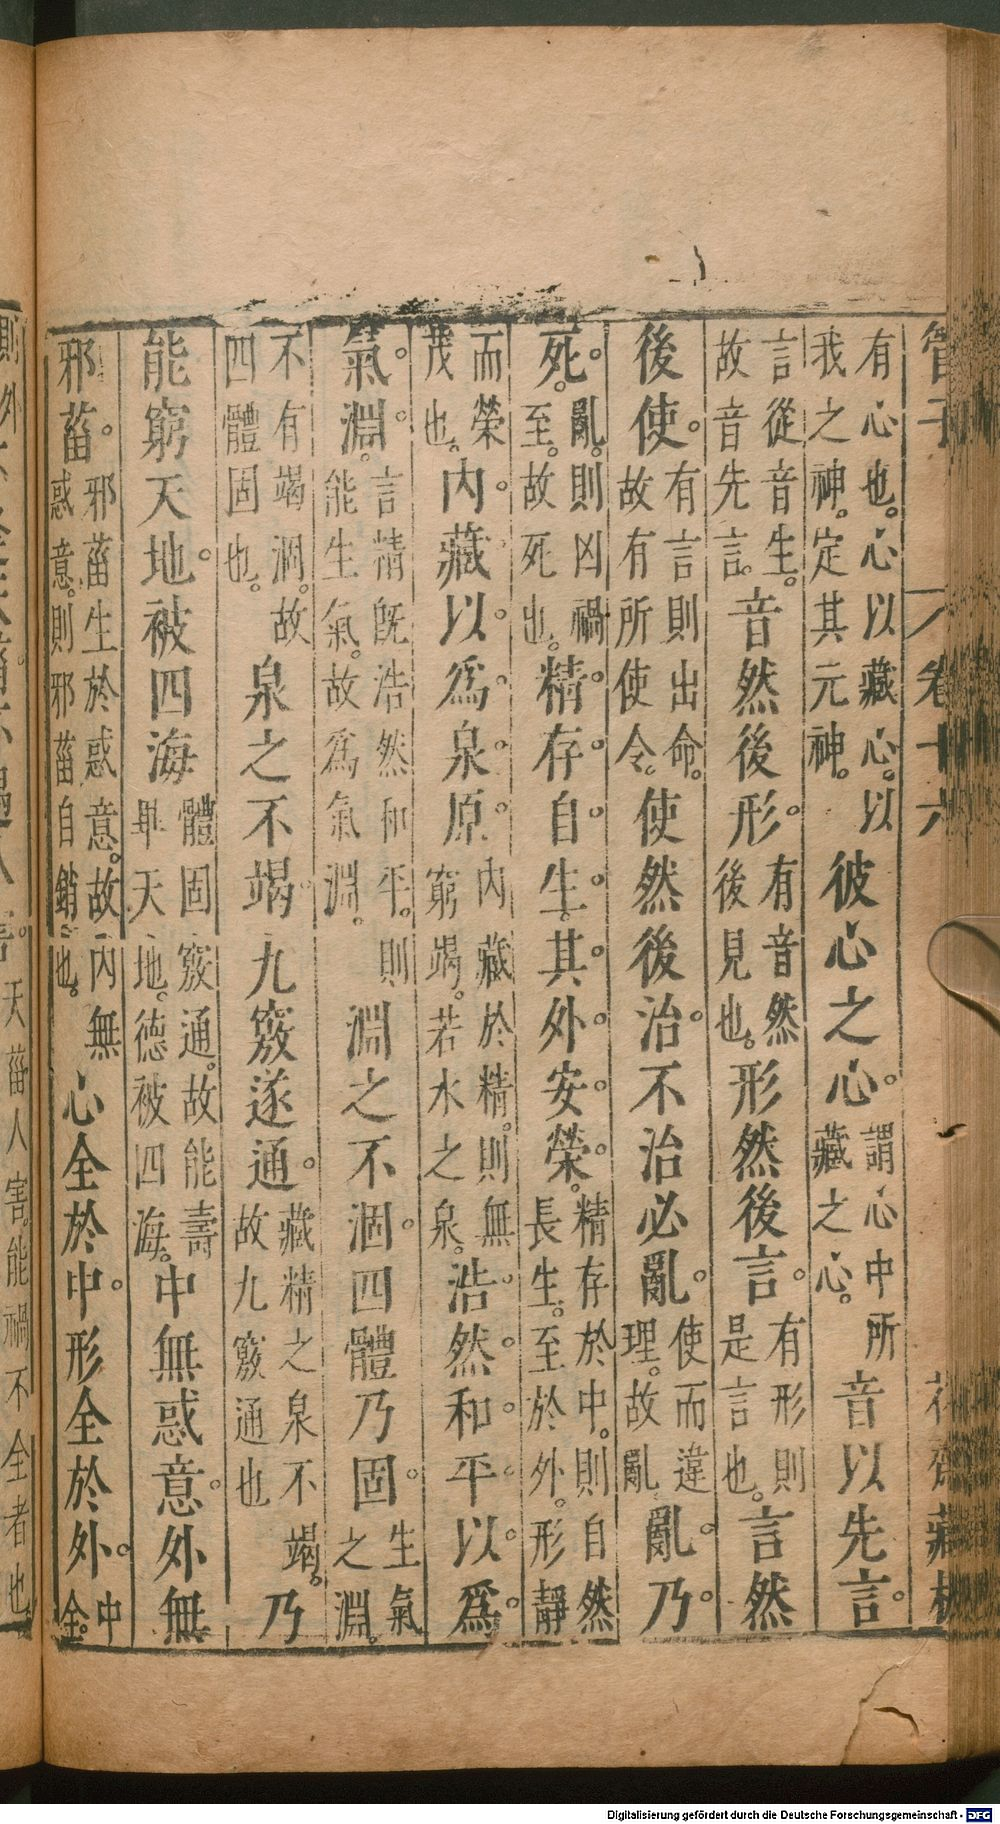 管子 卷十六 花齋藏板
有心也。心以藏心。以我之神。定其元神。彼心之心。謂心中所藏之心。音以先言。
言從音生。故音先言。音然後形。有音然後見也。形然後言。有形則是言也。言然
後使。有言則出命。故有所使令。使然後治。不治必亂。使而違理。故亂亂乃。
死。亂則凶禍至。故死也。精存自生。其外安榮。精存於中。則自然長生。至於外。形靜
而榮茂也。內藏以爲泉原。內藏於精。則無窮竭。若水之泉。浩然和平以爲
氣淵。言精既浩然和平。則能生氣。故爲氣淵。淵之不涸。四體乃固。生氣之淵。
不有竭涸。故四體固也。泉之不竭。九竅遂通。藏精之泉不竭。故九竅通也乃
能窮天地。被四海體固竅通。故能壽畢天地。德被四海。中無惑意。外無
邪菑。邪菑生於惑意。故內無惑意。則邪菑自銷也。心全於中。形全於外。中全。
天菑人害。能禍不全者也
Digitalisierung gefördert durch die Deutsche Forschungsgemeinschaft - DFG